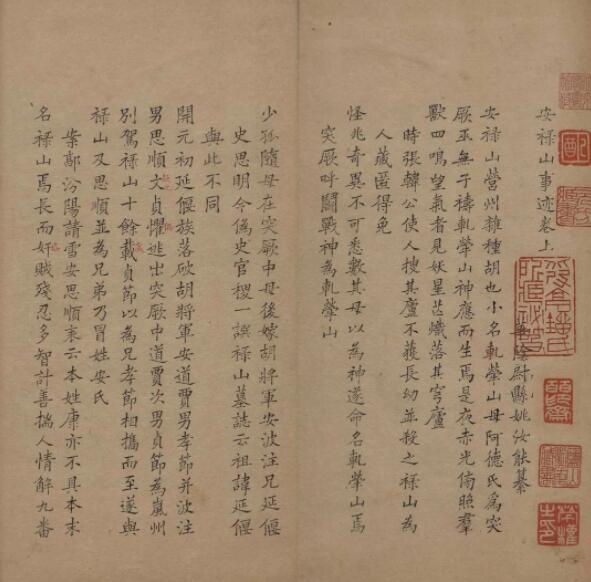 安禄山事迹卷上
華陰尉縣姚汝能纂
安禄山營州雜種胡也小名軋犖山母阿德氏為突
厥巫無子禱軋犖山神應而生焉是夜赤光傍照羣
獸四鳴望氣者見妖星芒熾落其穹廬
時張韓公使人搜其廬不獲長幼並殺之禄山為
人藏匿得免
怪兆奇異不可悉數其母以為神遂命名軋犖山焉
突厥呼鬭戰神為軋犖山
少孤隨母在突厥中母後嫁胡將軍安波注兄延偃
史思明令偽史官稷一譔禄山墓誌云祖諱延偃
與此不同
開元初延偃族落破胡將軍安道買男孝節并波注
男思順文貞懼逃出突厥中道買次男貞節為嵐州
別駕禄山十餘載貞節以為兄孝節相攜而至遂與
禄山及思順並為兄弟乃冒姓安氏
案鄗汾陽請雪安思順表云本姓康亦不具本末
名禄山焉長而奸賊殘忍多智計善揣人情解九番